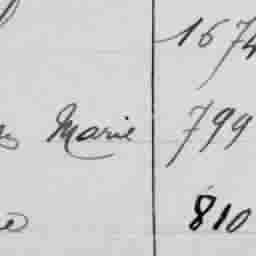 1674
Marie 799
810